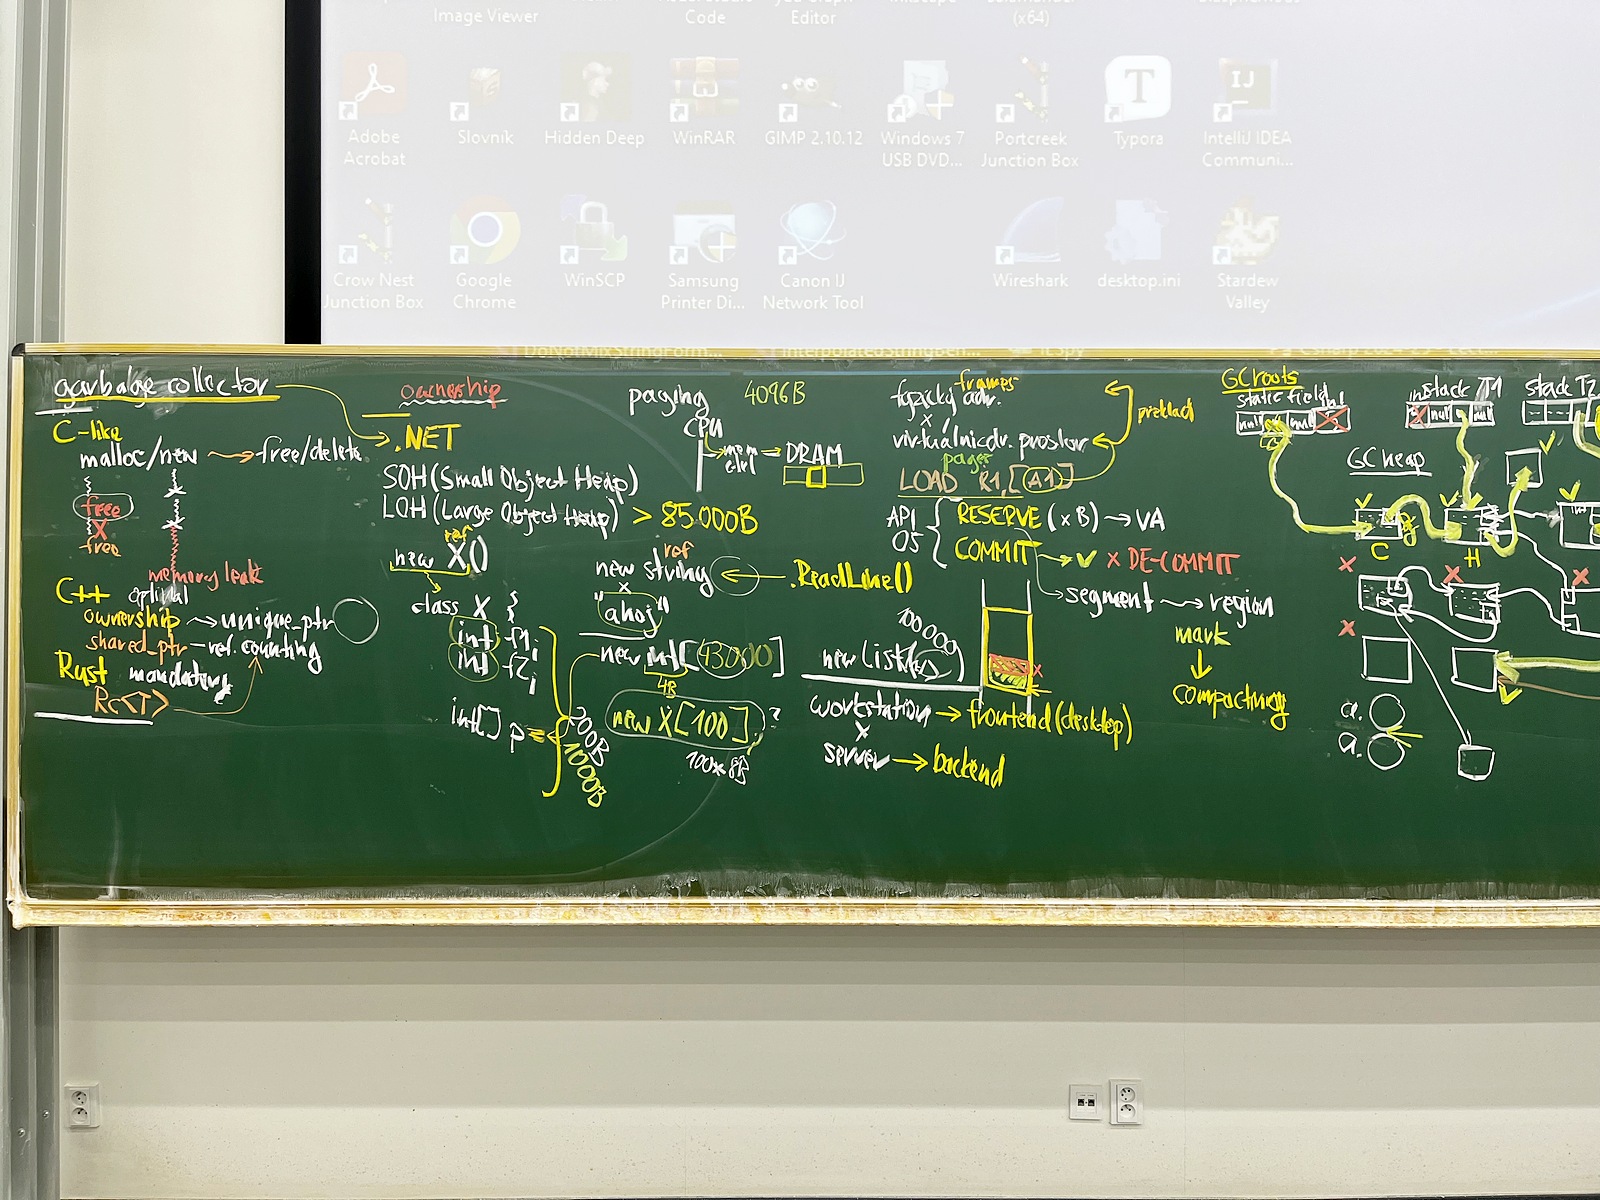 Image Viewer
Code
Editor
(x64)
Adobe Acrobat
Slovník
Hidden Deep
WinRAR
GIMP 2.10.12
Windows 7 USB DVD...
Portcreek Junction Box
Typora
IntelliJ IDEA Communi...
Crow Nest Junction Box
Google Chrome
WinSCP
Samsung Printer Di...
Canon IJ Network Tool
Wireshark
desktop.ini
Stardew Valley
DoNotMixStringForm...
InterpolatedStringBen...
ILSpy
garbage collector
C-like
malloc/new → free/delete
free
x
free
memory leak
C++ optional
ownership → unique_ptr
shared_ptr – ref. counting
Rust mandatory
Rc<T>
ownership
.NET
SOH (Small Object Heap)
LOH (Large Object Heap) > 85000B
ref
new X()
class X {
int f1;
int f2;
int[] p =
200B
1000B
ref
new string ← .ReadLine()
x
"ahoj"
new int[43000]
4B
new X[100] ?
100x 8B
paging 4096B
CPU
mem ctrl → DRAM
frames
fyzický adr.
x
virtuální adr. prostor
pages
překlad
LOAD R1,[A1]
API OS { RESERVE (x B) → VA
COMMIT → ✓ x DE-COMMIT
segment → region
mark
↓
compacting
100000
new List( )
workstation → frontend (desktop)
x
server → backend
GC roots
static field
null
null
stack T1
null
null
stack T2
GC heap
C
H